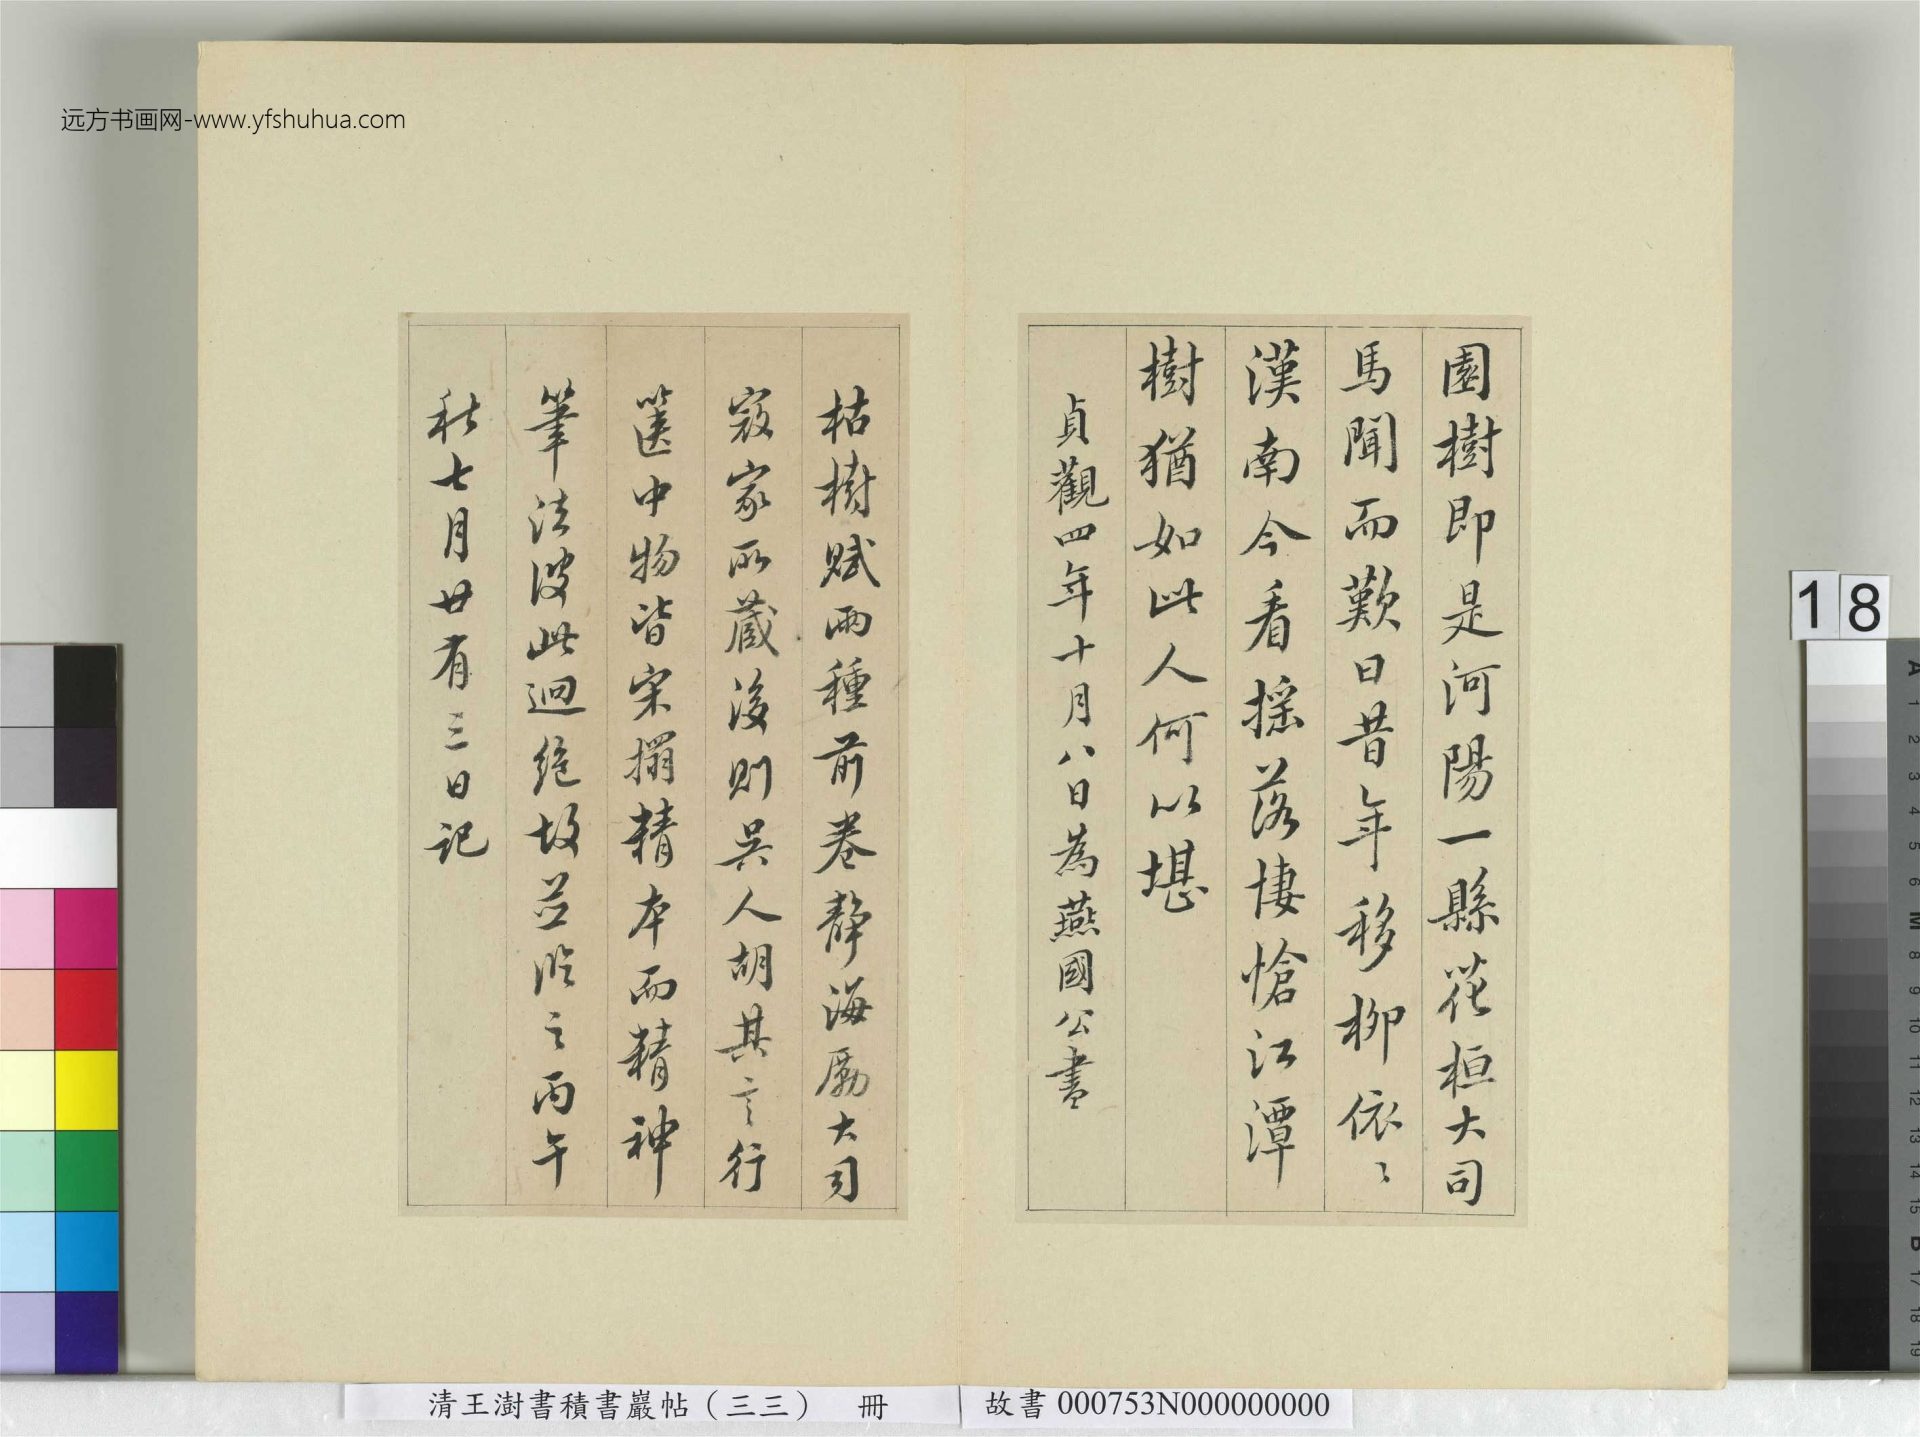 远方书画网-www.yfshuhua.com
園樹即是河陽一縣花桓大司
馬聞而歎曰昔年移柳依〻
漢南今看搖落悽愴江潭
樹猶如此人何以堪
貞觀四年十月八日為燕國公書
枯樹賦兩種前卷靜海勵大司
寇家所藏後則吳人胡其言行
篋中物皆宋搨精本而精神
筆法彼此迥絕故並臨之丙午
秋七月廿有三日記
18
清王澍書積書巖帖（三三） 冊
故書 000753N000000000
A 1 2 3 4 5 6 M 8 9 10 11 12 13 14 15 B 17 18 19